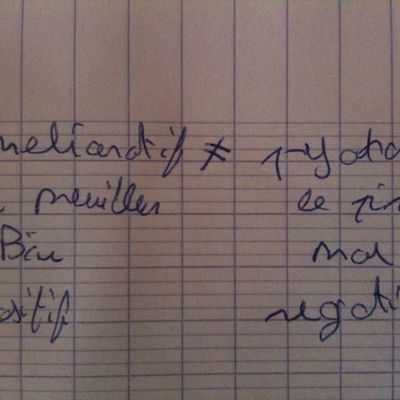 melioratif ≠ pejora
meilleur le pir
Bien mal
ositif negati